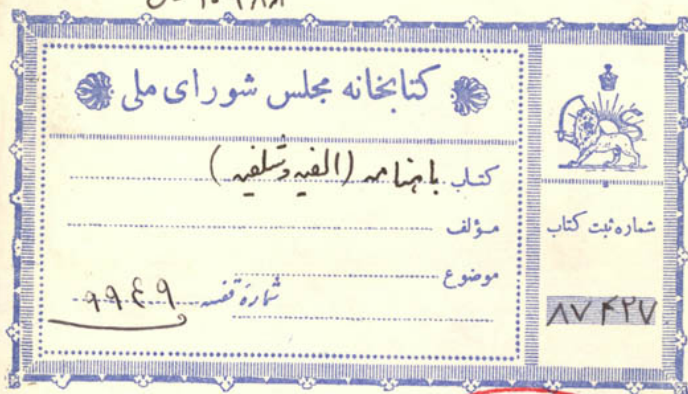 کتابخانه مجلس شورای ملی
کتاب باهنامه (الفیه و شلفیه)
مؤلف
موضوع
شمارهٔ قفسه ۹۹۴۹
شماره ثبت کتاب
۸۷۴۲۷